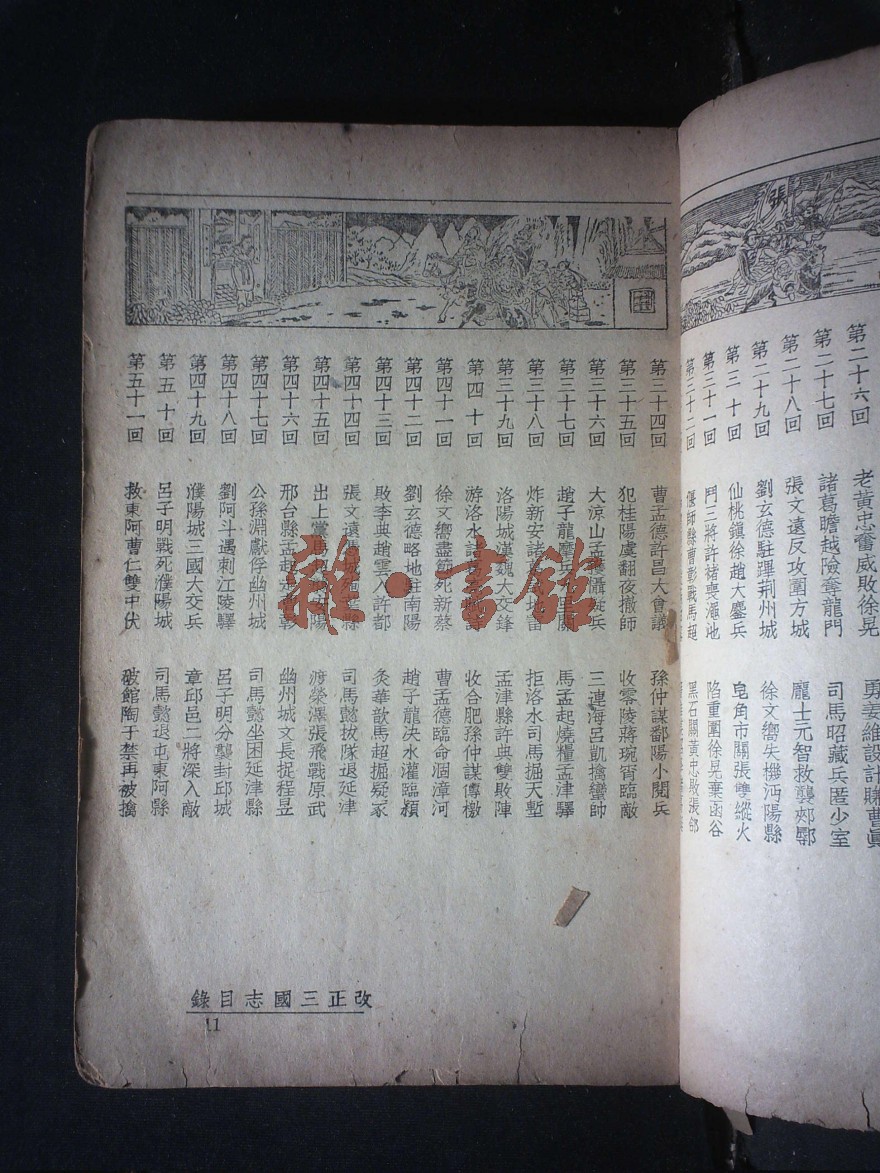 張
第二十六回 老黃忠奮威敗徐晃 勇姜維設計賺曹眞
第二十七回 諸葛瞻越險奪龍門 司馬昭藏兵匿少室
第二十八回 張文遠反攻圍方城 龐士元智救襲郟鄏
第二十九回 劉玄德駐蹕荆州城 徐文嚮失機沔陽縣
第三十回 仙桃鎭徐趙大鏖兵 皂角市關張雙縱火
第三十一回 鬥三將許褚喪澠池 陷重圍徐晃棄函谷
第三十二回 偃師縣曹彰戰馬超 黑石關黃忠敗張郃
第三十四回 曹孟德許邑大會議 孫仲謀鄱陽小閱兵
第三十五回 犯桂陽虞翻夜撤師 收零陵蔣琬宵臨敵
第三十六回 大涼山孟 兵 三連海呂凱擒蠻帥
第三十七回 趙子龍鏖兵 關 馬孟起燒糧孟津驛
第三十八回 炸新安諸 雷 拒洛水司馬掘天塹
第三十九回 洛陽城漢魏大交鋒 孟津縣許典雙敗陣
第四十回 游洛水諸 收合肥孫仲謀傳檄
第四十一回 徐文嚮盡節死新蔡 曹孟德臨命凅漳河
第四十二回 劉玄德略地駐南陽 趙子龍决水灌臨潁
第四十三回 敗李典趙雲入許都 灸華歆馬超掘疑冢
第四十四回 張文遠 縣 司馬懿拔隊退延津
第四十五回 出上黨馬 陽 渡滎澤張飛戰原武
第四十六回 邢台縣孟起 幽州城文長捉程昱
第四十七回 公孫淵獻俘幽州城 司馬懿坐困延津縣
第四十八回 劉阿斗遇刺江陵驛 呂子明分襲封邱城
第四十九回 濮陽城三國大交兵 章邱邑二將深入敵
第五十回 呂子明戰死濮陽城 司馬懿退屯東阿縣
第五十一回 救東阿曹仁雙中伏 破館陶于禁再被擒
雜·書館
改正三國志目錄
11